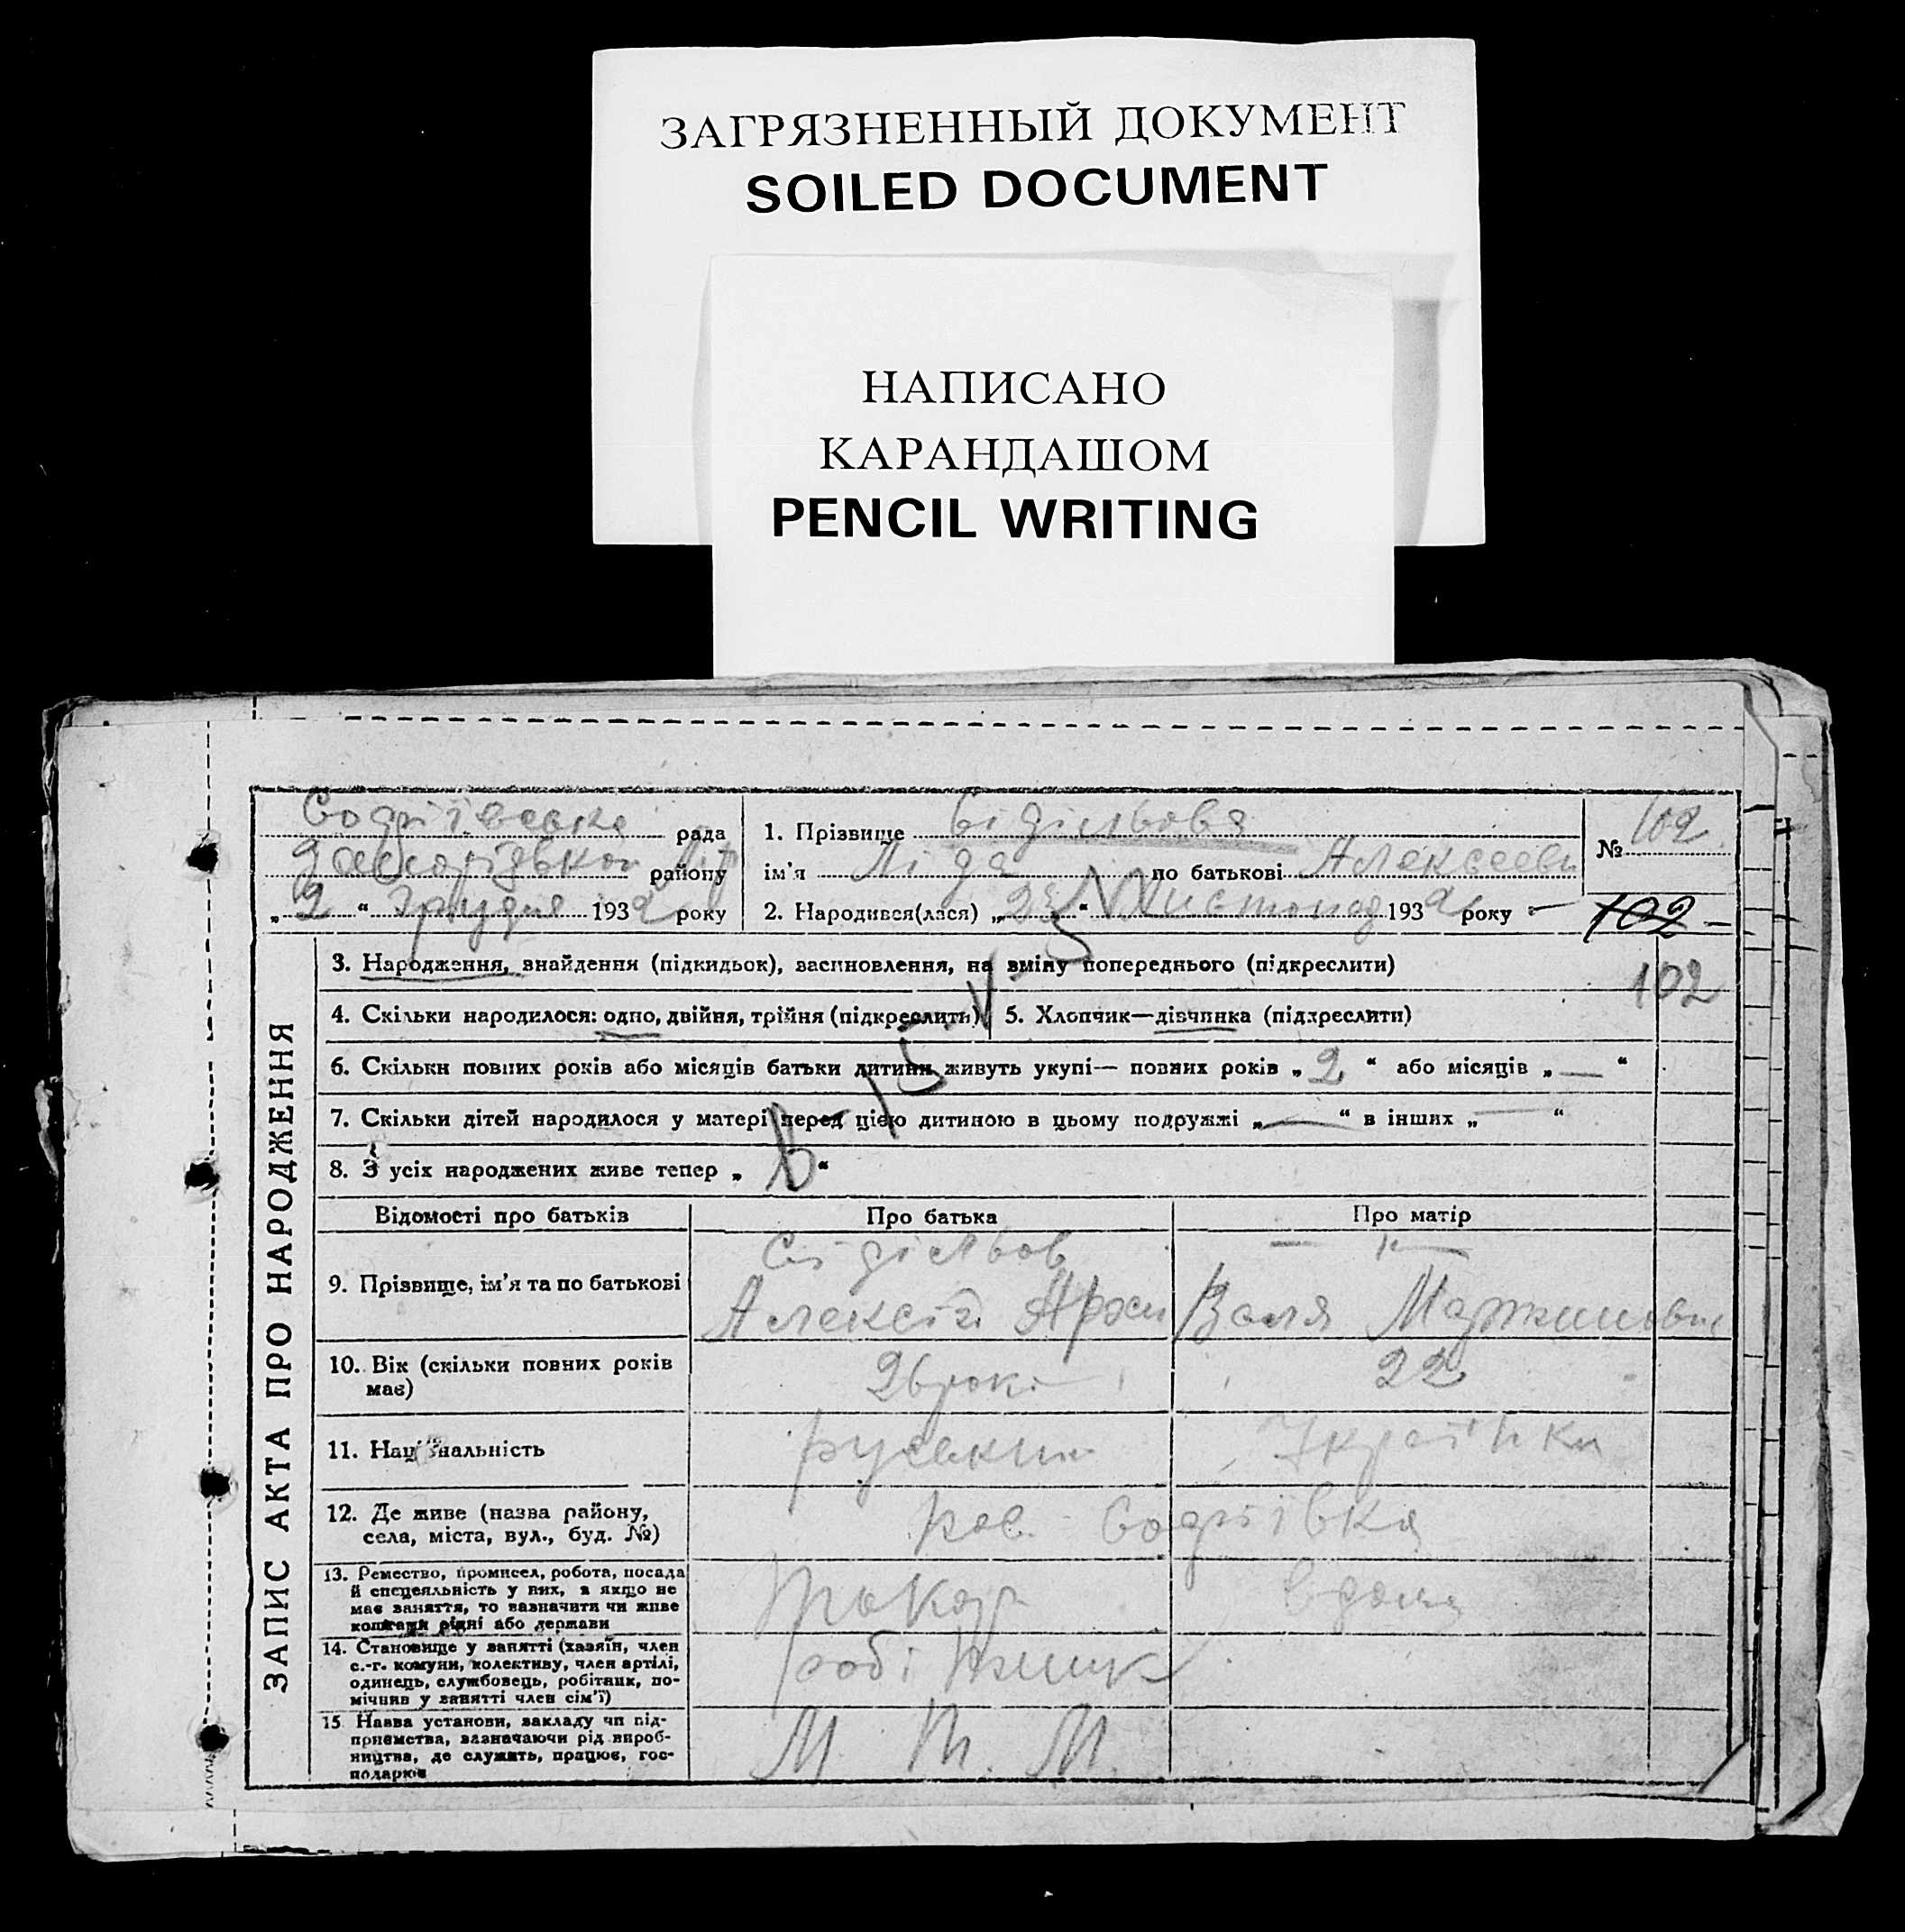 ЗАГРЯЗНЕННЫЙ ДОКУМЕНТ
SOILED DOCUMENT
НАПИСАНО
КАРАНДАШОМ
PENCIL WRITING
ЗАПИС АКТА ПРО НАРОДЖЕННЯ
Софіївська рада
району
„ 2 “ Грудня 1932 року
1. Прізвище Сідільова
ім'я Ліда по батькові Алексєєвн
2. Народився(лася) „ “ Листопад 1932 року
№ 102
102
102
3. Народження, знайдення (підкидьок), засиновлення, на зміну попереднього (підкреслити)
4. Скільки народилося: одно, двійня, трійня (підкреслити)
5. Хлопчик—дівчинка (підкреслити)
6. Скільки повних років або місяців батьки дитини живуть укупі— повних років „ 2 “ або місяців „ — “
7. Скільки дітей народилося у матері перед цією дитиною в цьому подружжі „ — “ в інших „ — “
8. З усіх народжених живе тепер „ “
Відомості про батьків
Про батька
Про матір
9. Прізвище, ім'я та по батькові
Сідільов
Алексій Архи
— " —
Валя Мартиновна
10. Вік (скільки повних років
має)
26 рокі
22
11. Національність
руський
Українка
12. Де живе (назва району,
села, міста, вул., буд. №)
Софіівка
13. Ремество, промисел, робота, посада
й спецеяльність у них, а якщо не
має заняття, то зазначити чи живе
коштами рідні або держави
Токар
вдома
14. Становище у занятті (хазяїн, член
с.-г. комуни, колективу, член артілі,
одинець, службовець, робітник, по-
мічник у занятті член сім'ї)
робітник
15 Назва установи, закладу чи під-
приємства, зазначаючи рід вироб-
ництва, де служить, працює, гос-
подарює
М. Т. М.